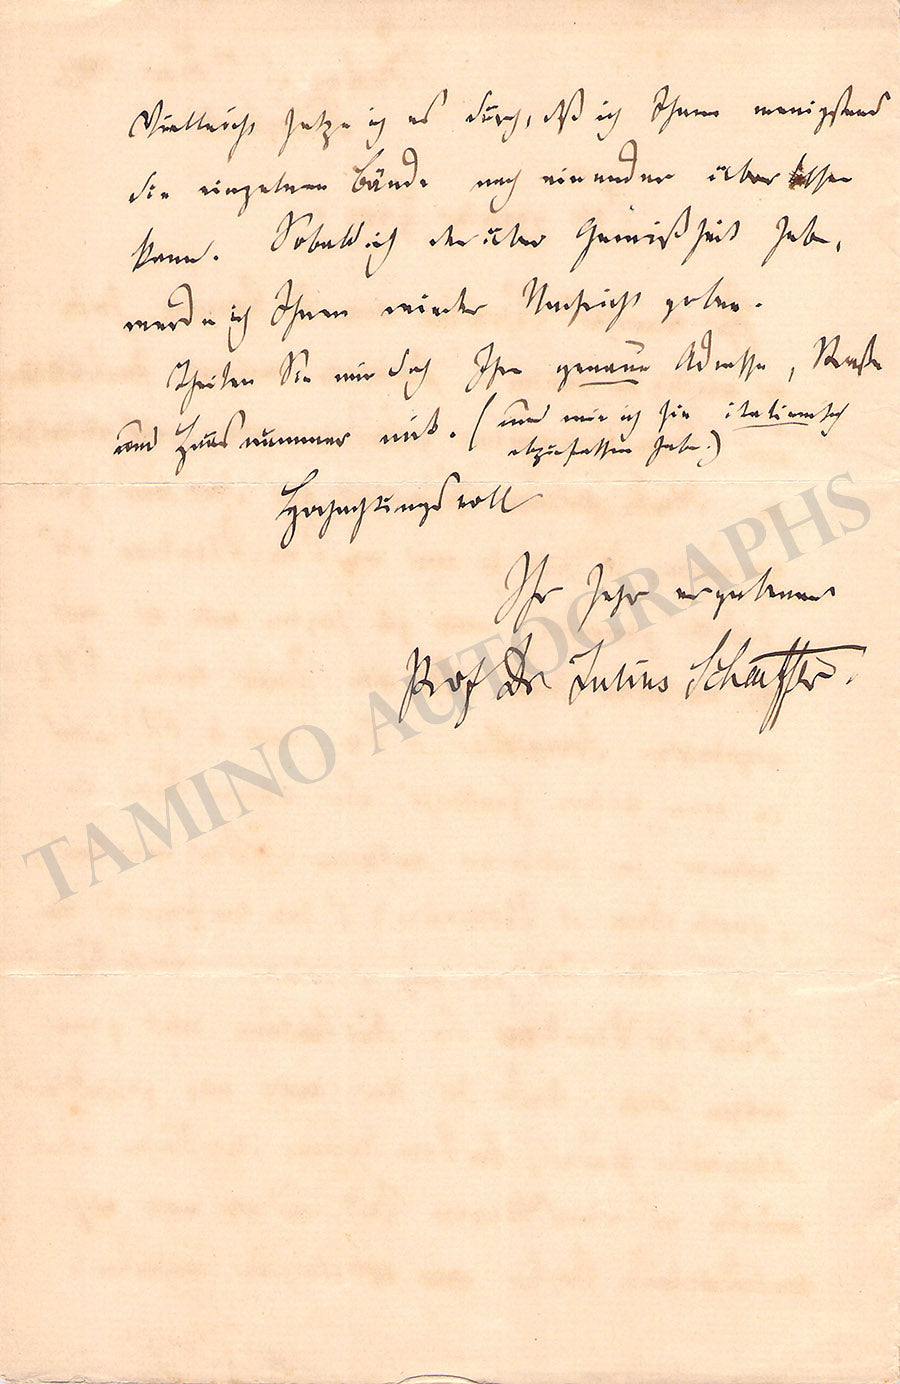 Vielleicht setze ich es durch, dß ich Ihnen wenigstens
die einzelnen Bände nach einander überlassen
kann. Sobald ich darüber Gewißheit habe,
werde ich Ihnen wieder Nachricht geben.
Theilen Sie mir doch Ihre genaue Adresse, Straße
und Hausnummer mit. (und wie ich sie italienisch
abzufassen habe.)
Hochachtungsvoll
Ihr sehr ergebener
Prof Dr Julius Schaeffer.
TAMINO AUTOGRAPHS